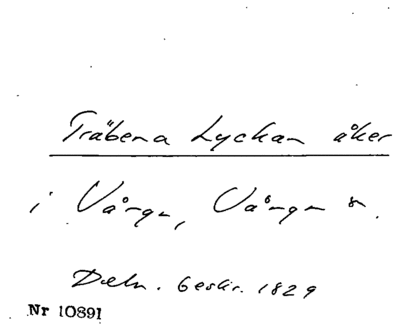 Träbena Lyckan åker
i Vårgn, Vårgn s.
Deln. beskr. 1829
Nr 10891